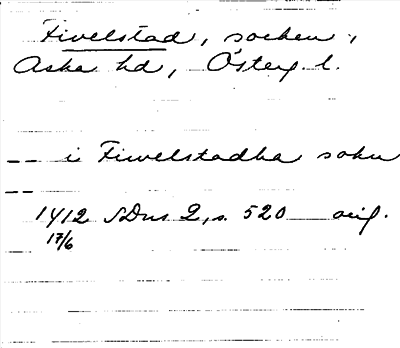 Fivelstad, socken,
Aska hd, Österg. l.
-- i Fiwelstadha sokn
--
1412 SDns 2, s. 520 orig.
17/6